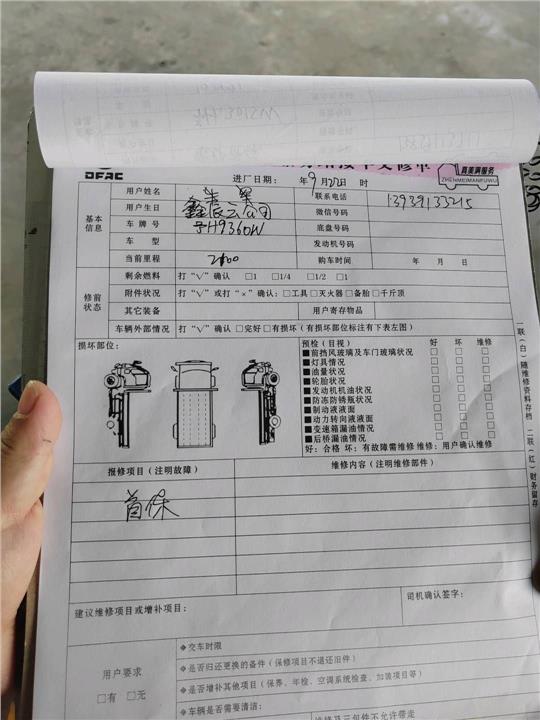 DFAC
真美满服务
ZHENMEIMANFUWU
进厂日期： 年9月22日 时
基本信息
用户姓名
联系电话 13939133215
用户生日 鑫辰云公司
微信号码
车牌号 H9360W
底盘号码
车型
发动机号码
当前里程 2100
购车时间 年 月 日
修前状态
剩余燃料 打“√”确认 □1 □1/4 □1/2 □1
附件状况 打“√”或打“×”确认：□工具 □灭火器 □备胎 □千斤顶
其它装备
用户寄存物品
车辆外部情况 打“√”确认 □完好 □有损坏（有损坏部位标注有下表左图）
损坏部位：
预检（目视） 好 坏 维修
■前挡风玻璃及车门玻璃状况 □ □ □
■灯具情况 □ □ □
■油量状况 □ □ □
■轮胎状况 □ □ □
■发动机机油状况 □ □ □
■防冻防锈瓶状况 □ □ □
■制动液液面 □ □ □
■动力转向液液面 □ □ □
■变速箱漏油情况 □ □ □
■后桥漏油情况 □ □ □
好：合格 坏：有故障需维修 维修：用户确认维修
报修项目（注明故障）
维修内容（注明维修部件）
首保
建议维修项目或增补项目：
司机确认签字：
用户要求
□有 □无
◆交车时限
◆是否归还更换的备件（保修项目不退还旧件）
◆是否增补其他项目（保养、年检、空调系统检查、加装项目等）
◆车辆是否需要清洁：
维修及三包件不允许带走
一联（白）随维修资料存档 二联（红）财务留存